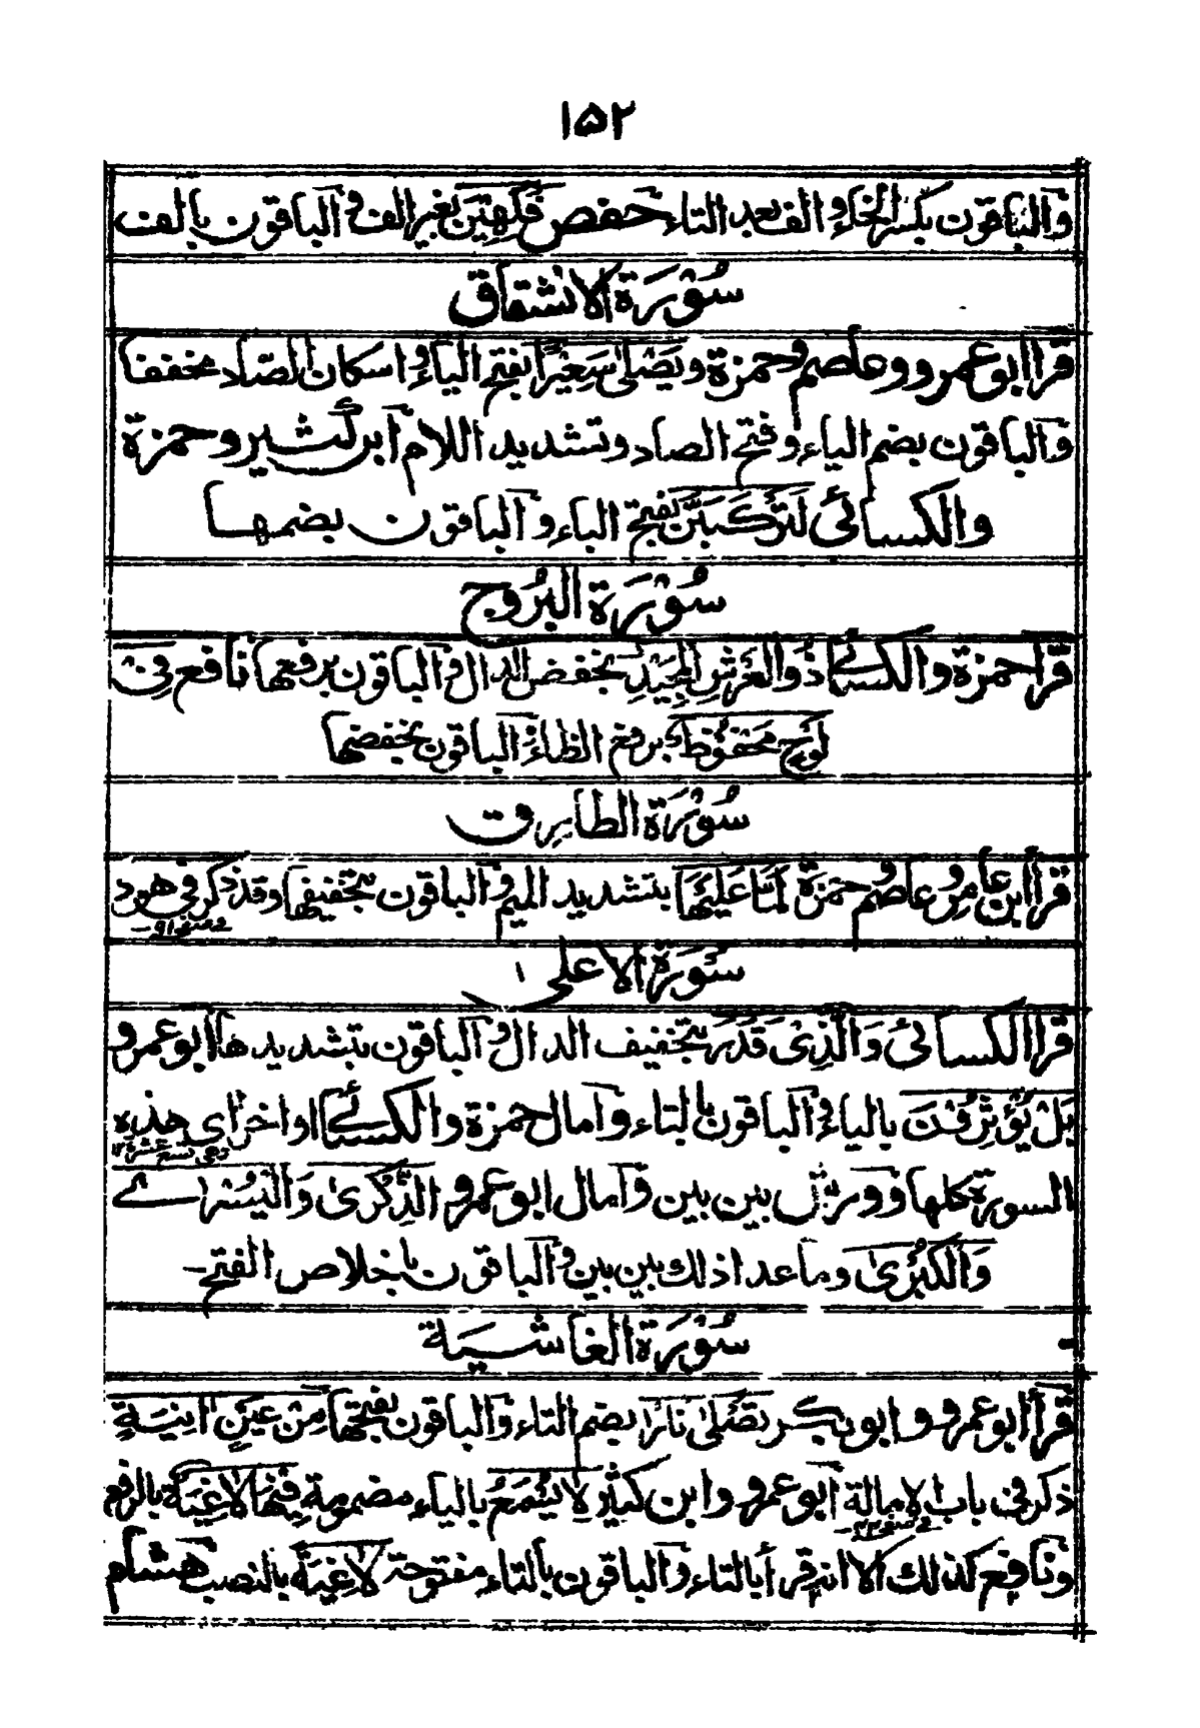 ١٥٢
والباقون بكسر الخاء والف بعد التاء حفص فَكِهِيْنَ بغير الف والباقون بالف
سُوْرَة الانشقاق
قرا ابو عمرو وعاصم وحمزة ويَصْلٰى سَعِيْرًا بفتح الياء واسكان الصاد مخففا
والباقون بضم الياء وفتح الصاد وتشديد اللام ابن كثير وحمزة
والكسائي لَتَرْكَبَنَّ بفتح الباء والباقون بضمها
سُوْرَة البُرُوج
قرا حمزة والكسائي ذُوالعَرْشِ المَجِيْدِ بخفض الدال والباقون برفعها نافع فِيْ
لَوْحٍ مَحْفُوْظٌ برفع الظاء والباقون بخفضها
سُوْرَة الطارق
قرأ ابن عامر وعاصم وحمزة لَمَّا عَلَيْهَا بتشديد الميم والباقون بتخفيفها وقد ذكر في هود
سُوْرَة الاعلى
قرا الكسائي وَالَّذِىْ قَدَرَ بتخفيف الدال والباقون بتشديدها ابو عمرو
بَلْ يُؤْثِرُوْنَ بالياء والباقون بالتاء وامال حمزة والكسائي اواخر اى هذه
السورة كلها وورش بين بين وامال ابو عمرو الذِّكْرٰى وَالْيُسْرٰى
وَالْكُبْرٰى وما عدا ذلك بين بين والباقون باخلاص الفتح-
سُوْرَة الغاشِيَة
قرأ ابو عمرو وابو بكر تُصْلٰى نَارًا بضم التاء والباقون بفتحها مِنْ عَيْنٍ اٰنِيَةٍ
ذكر في باب الامالة ابو عمرو وابن كثير لا يُسْمَعُ بالياء مضمومة فِيْهَا لَاغِيَةٌ بالرفع
ونافع كذلك الا انه قرأ بالتاء والباقون بالتاء مفتوحة لَاغِيَةً بالنصب هشام